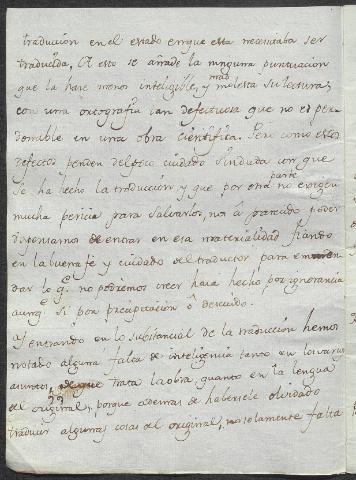 traducción en el estado en que esta necesitaba ser
traducida. A esto se añade la ninguna puntuacion
que la hace menos inteligible, y mas molesta su lectura;
con una ortografia tan defectuosa que no es per
donable en una obra cientifica. Pero como estos
defectos penden del poco cuidado sin duda con que
se ha hecho la traducción y que por otra parte no exigen
mucha pericia para salvarlos, nos á parecido poder
dispensarnos de entrar en esa materialidad fiando
en la buena fe y cuidado del traductor para enmen
dar lo q.e no podremos creer haia hecho por ignorancia
aunq.e si por precipitacion ó descuido.
Y entrando en lo substancial de la traducción hemos
notado alguna falta de inteligencia tanto en los varios
asuntos, de que trata la obra, quanto en la lengua
del original; porque ademas de habersele olvidado
traducir algunas cosas del original, no solamente falta